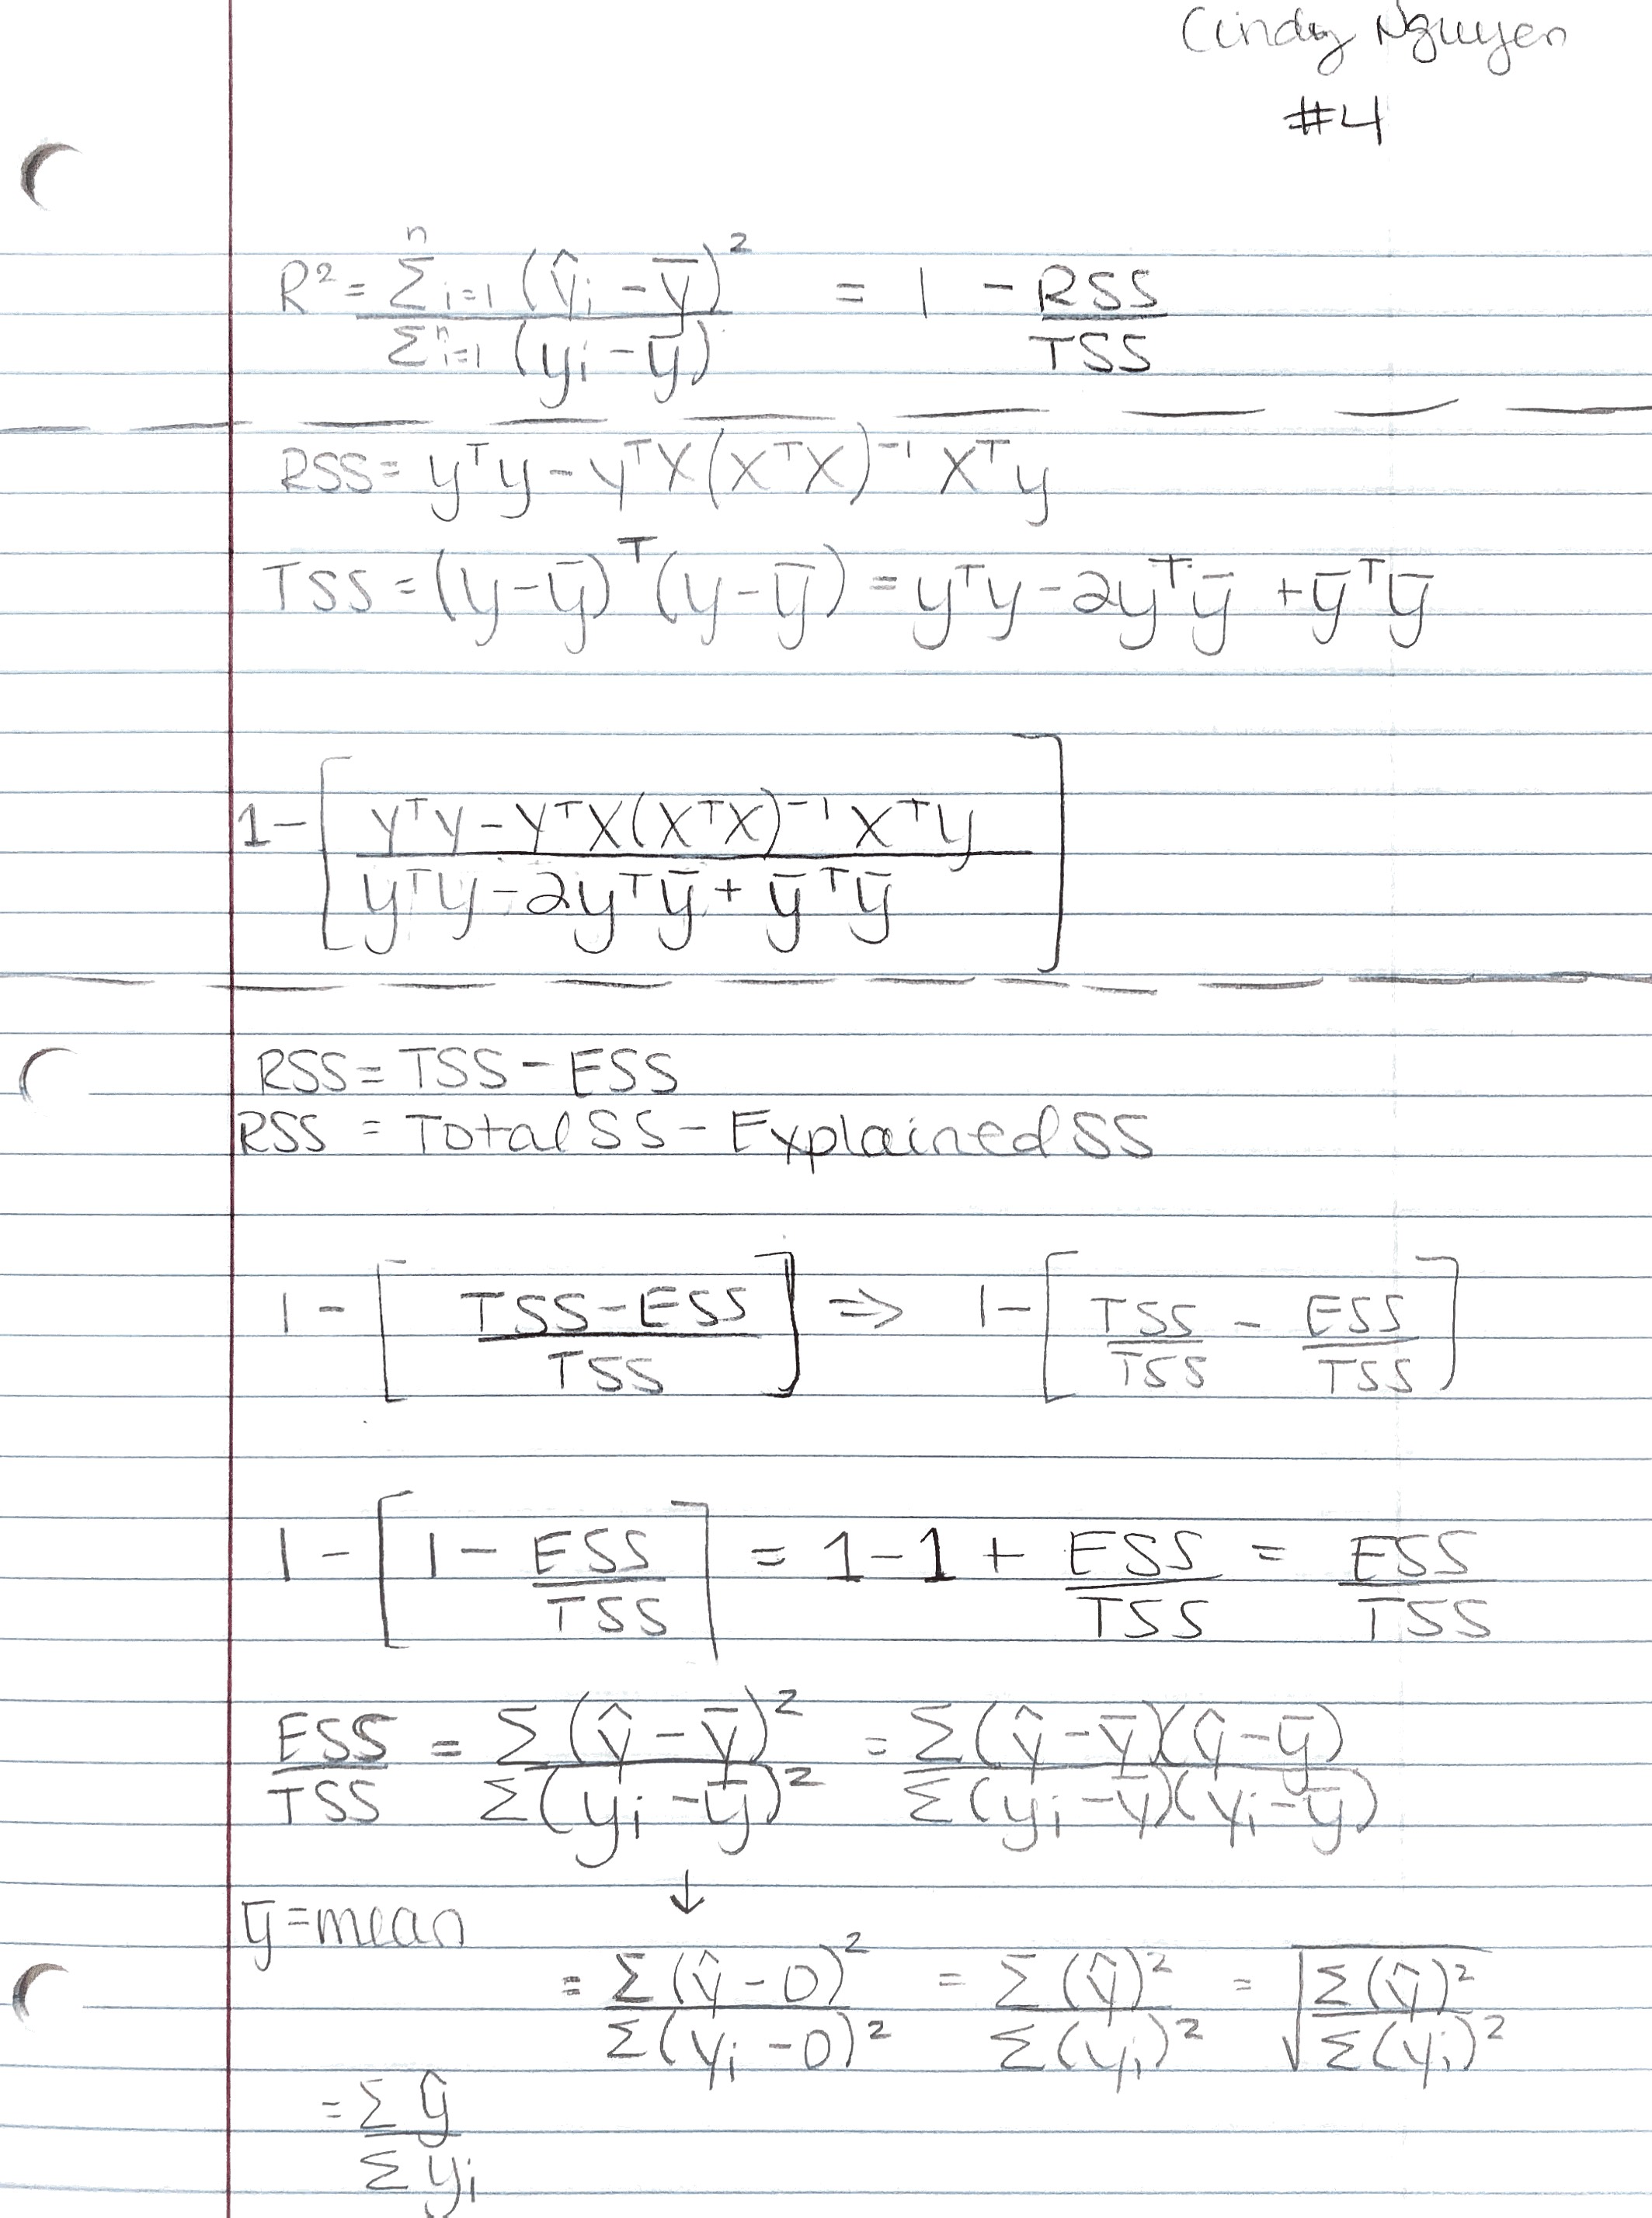 Cindy Nguyen
#4
R² = Σⁿᵢ₌₁ (ŷᵢ - ȳ)² / Σⁿᵢ₌₁ (yᵢ - ȳ) = 1 - RSS / TSS
RSS = yᵀy - yᵀX(XᵀX)⁻¹ Xᵀy
TSS = (y - ȳ)ᵀ (y - ȳ) = yᵀy - 2yᵀȳ + ȳᵀȳ
1 - [ yᵀy - yᵀX(XᵀX)⁻¹ Xᵀy / yᵀy - 2yᵀȳ + ȳᵀȳ ]
RSS = TSS - ESS
RSS = Total SS - Explained SS
1 - [ TSS - ESS / TSS ] ⇒ 1 - [ TSS / TSS - ESS / TSS ]
1 - [ 1 - ESS / TSS ] = 1 - 1 + ESS / TSS = ESS / TSS
ESS / TSS = Σ(ŷ - ȳ)² / Σ(yᵢ - ȳ)² = Σ(ŷ - ȳ)(ŷ - ȳ) / Σ(yᵢ - ȳ)(yᵢ - ȳ)
↓
ȳ = mean
= Σ(ŷ - 0)² / Σ(yᵢ - 0)² = Σ(ŷ)² / Σ(yᵢ)² = √ Σ(ŷ)² / Σ(yᵢ)²
= Σ ŷ / Σ yᵢ